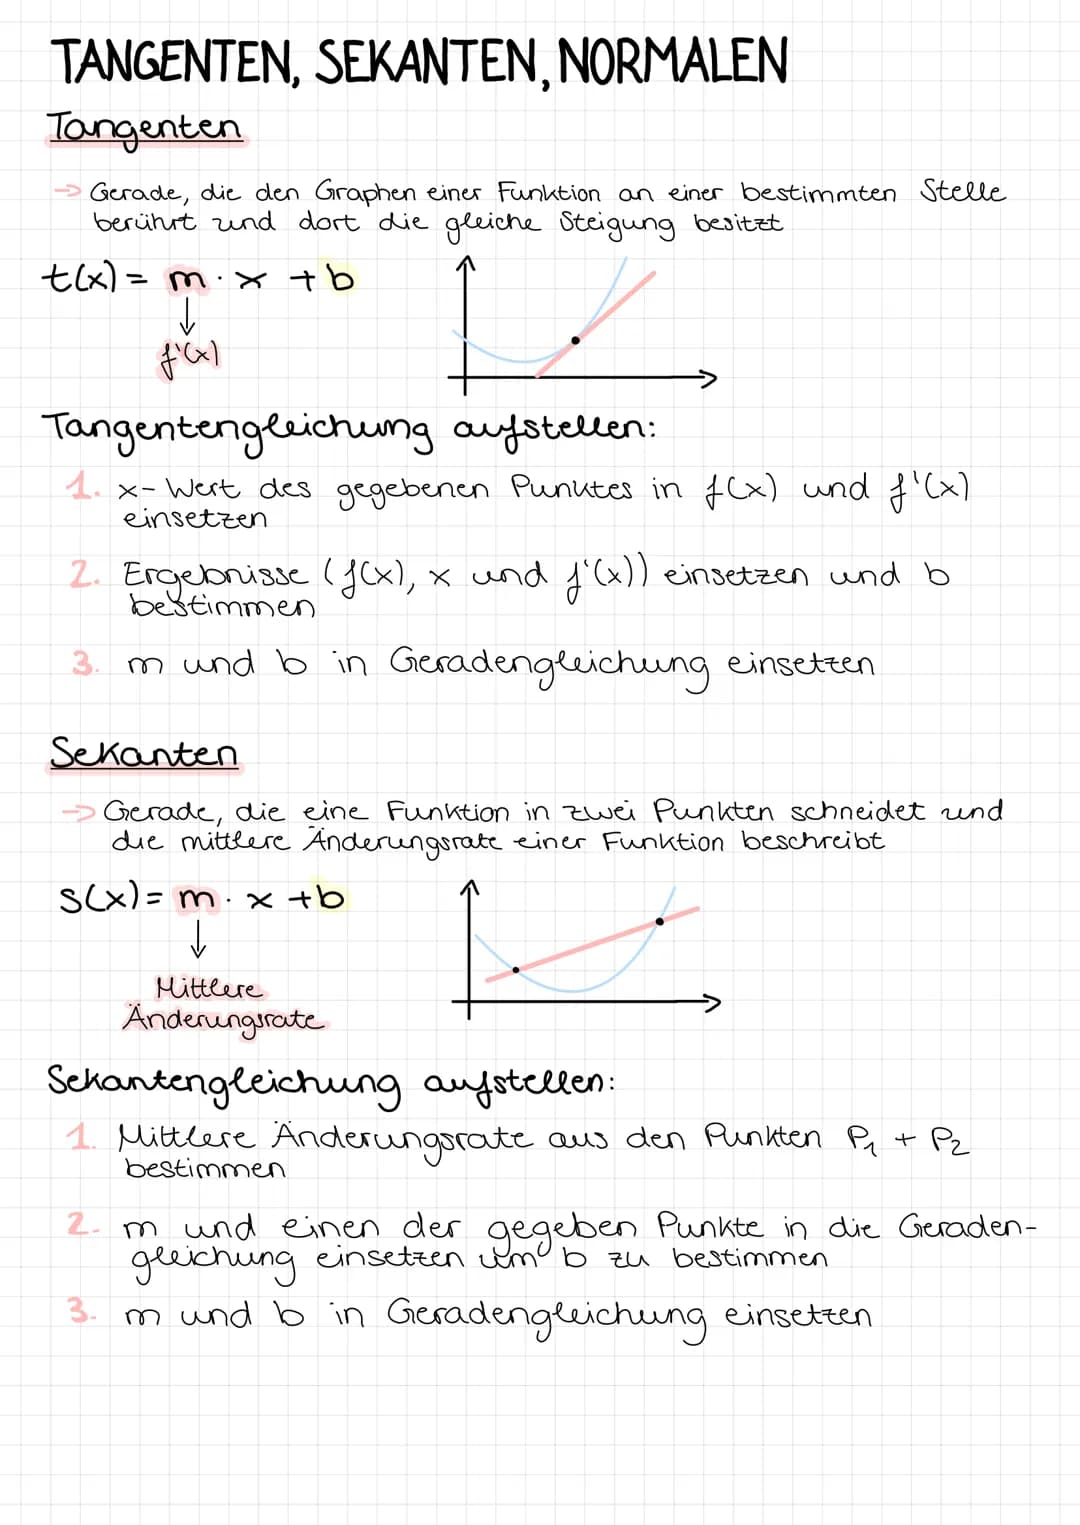 TANGENTEN, SEKANTEN, NORMALEN
Tangenten
→ Gerade, die den Graphen einer Funktion an einer bestimmten Stelle
berührt und dort die gleiche Steigung besitzt
t(x) = m · x + b
↓
f'(x)
Tangentengleichung aufstellen:
1. x-Wert des gegebenen Punktes in f(x) und f'(x)
einsetzen
2. Ergebnisse (f(x), x und f'(x)) einsetzen und b
bestimmen
3. m und b in Geradengleichung einsetzen
Sekanten
→ Gerade, die eine Funktion in zwei Punkten schneidet und
die mittlere Änderungsrate einer Funktion beschreibt
s(x) = m · x + b
↓
Mittlere
Änderungsrate
Sekantengleichung aufstellen:
1. Mittlere Änderungsrate aus den Punkten P₁ + P₂
bestimmen
2. m und einen der gegeben Punkte in die Geraden-
gleichung einsetzen um b zu bestimmen
3. m und b in Geradengleichung einsetzen